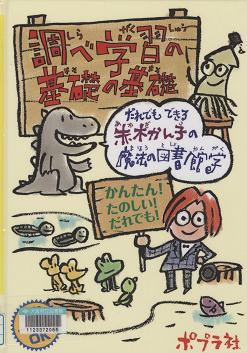 調べ学習の
基礎の基礎
だれでもできる
赤木かん子の
魔法の図書館学
かんたん!
たのしい!
だれでも!
ポプラ社